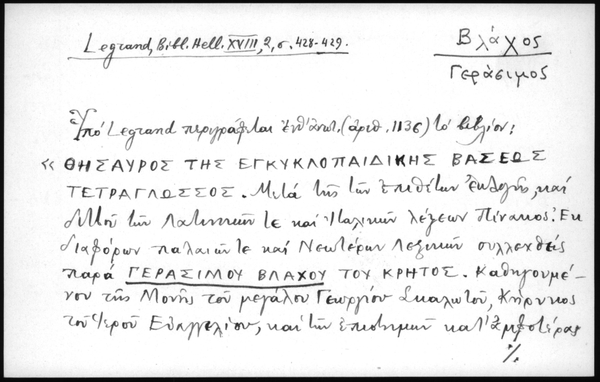 Legrand, Bibl. Hell. XVIII, 2, σ. 428-429.
Βλάχος
Γεράσιμος
Ὑπό Legrand περιγράφεται ἐνθ' ἀνωτ. (ἀριθ. 1136) τό βιβλίον:
« ΘΗΣΑΥΡΟΣ ΤΗΣ ΕΓΚΥΚΛΟΠΑΙΔΙΚΗΣ ΒΑΣΕΩΣ
ΤΕΤΡΑΓΛΩΣΣΟΣ. Μετά τῆς τῶν ἐπιθέτων ἐκλογῆς, καί
διττοῦ τῶν Λατινικῶν τε καί Ἰταλικῶν λέξεων Πίνακος. Ἐκ
διαφόρων παλαιῶν τε καί Νεωτέρων Λεξικῶν συλλεχθείς
παρά ΓΕΡΑΣΙΜΟΥ ΒΛΑΧΟΥ ΤΟΥ ΚΡΗΤΟΣ. Καθηγουμέ-
νου τῆς Μονῆς τοῦ μεγάλου Γεωργίου Σκαλωτοῦ, Κήρυκος
τοῦ Ἱεροῦ Εὐαγγελίου, καί τῶν ἐπιστημῶν κατ' ἀμφοτέρας
./.